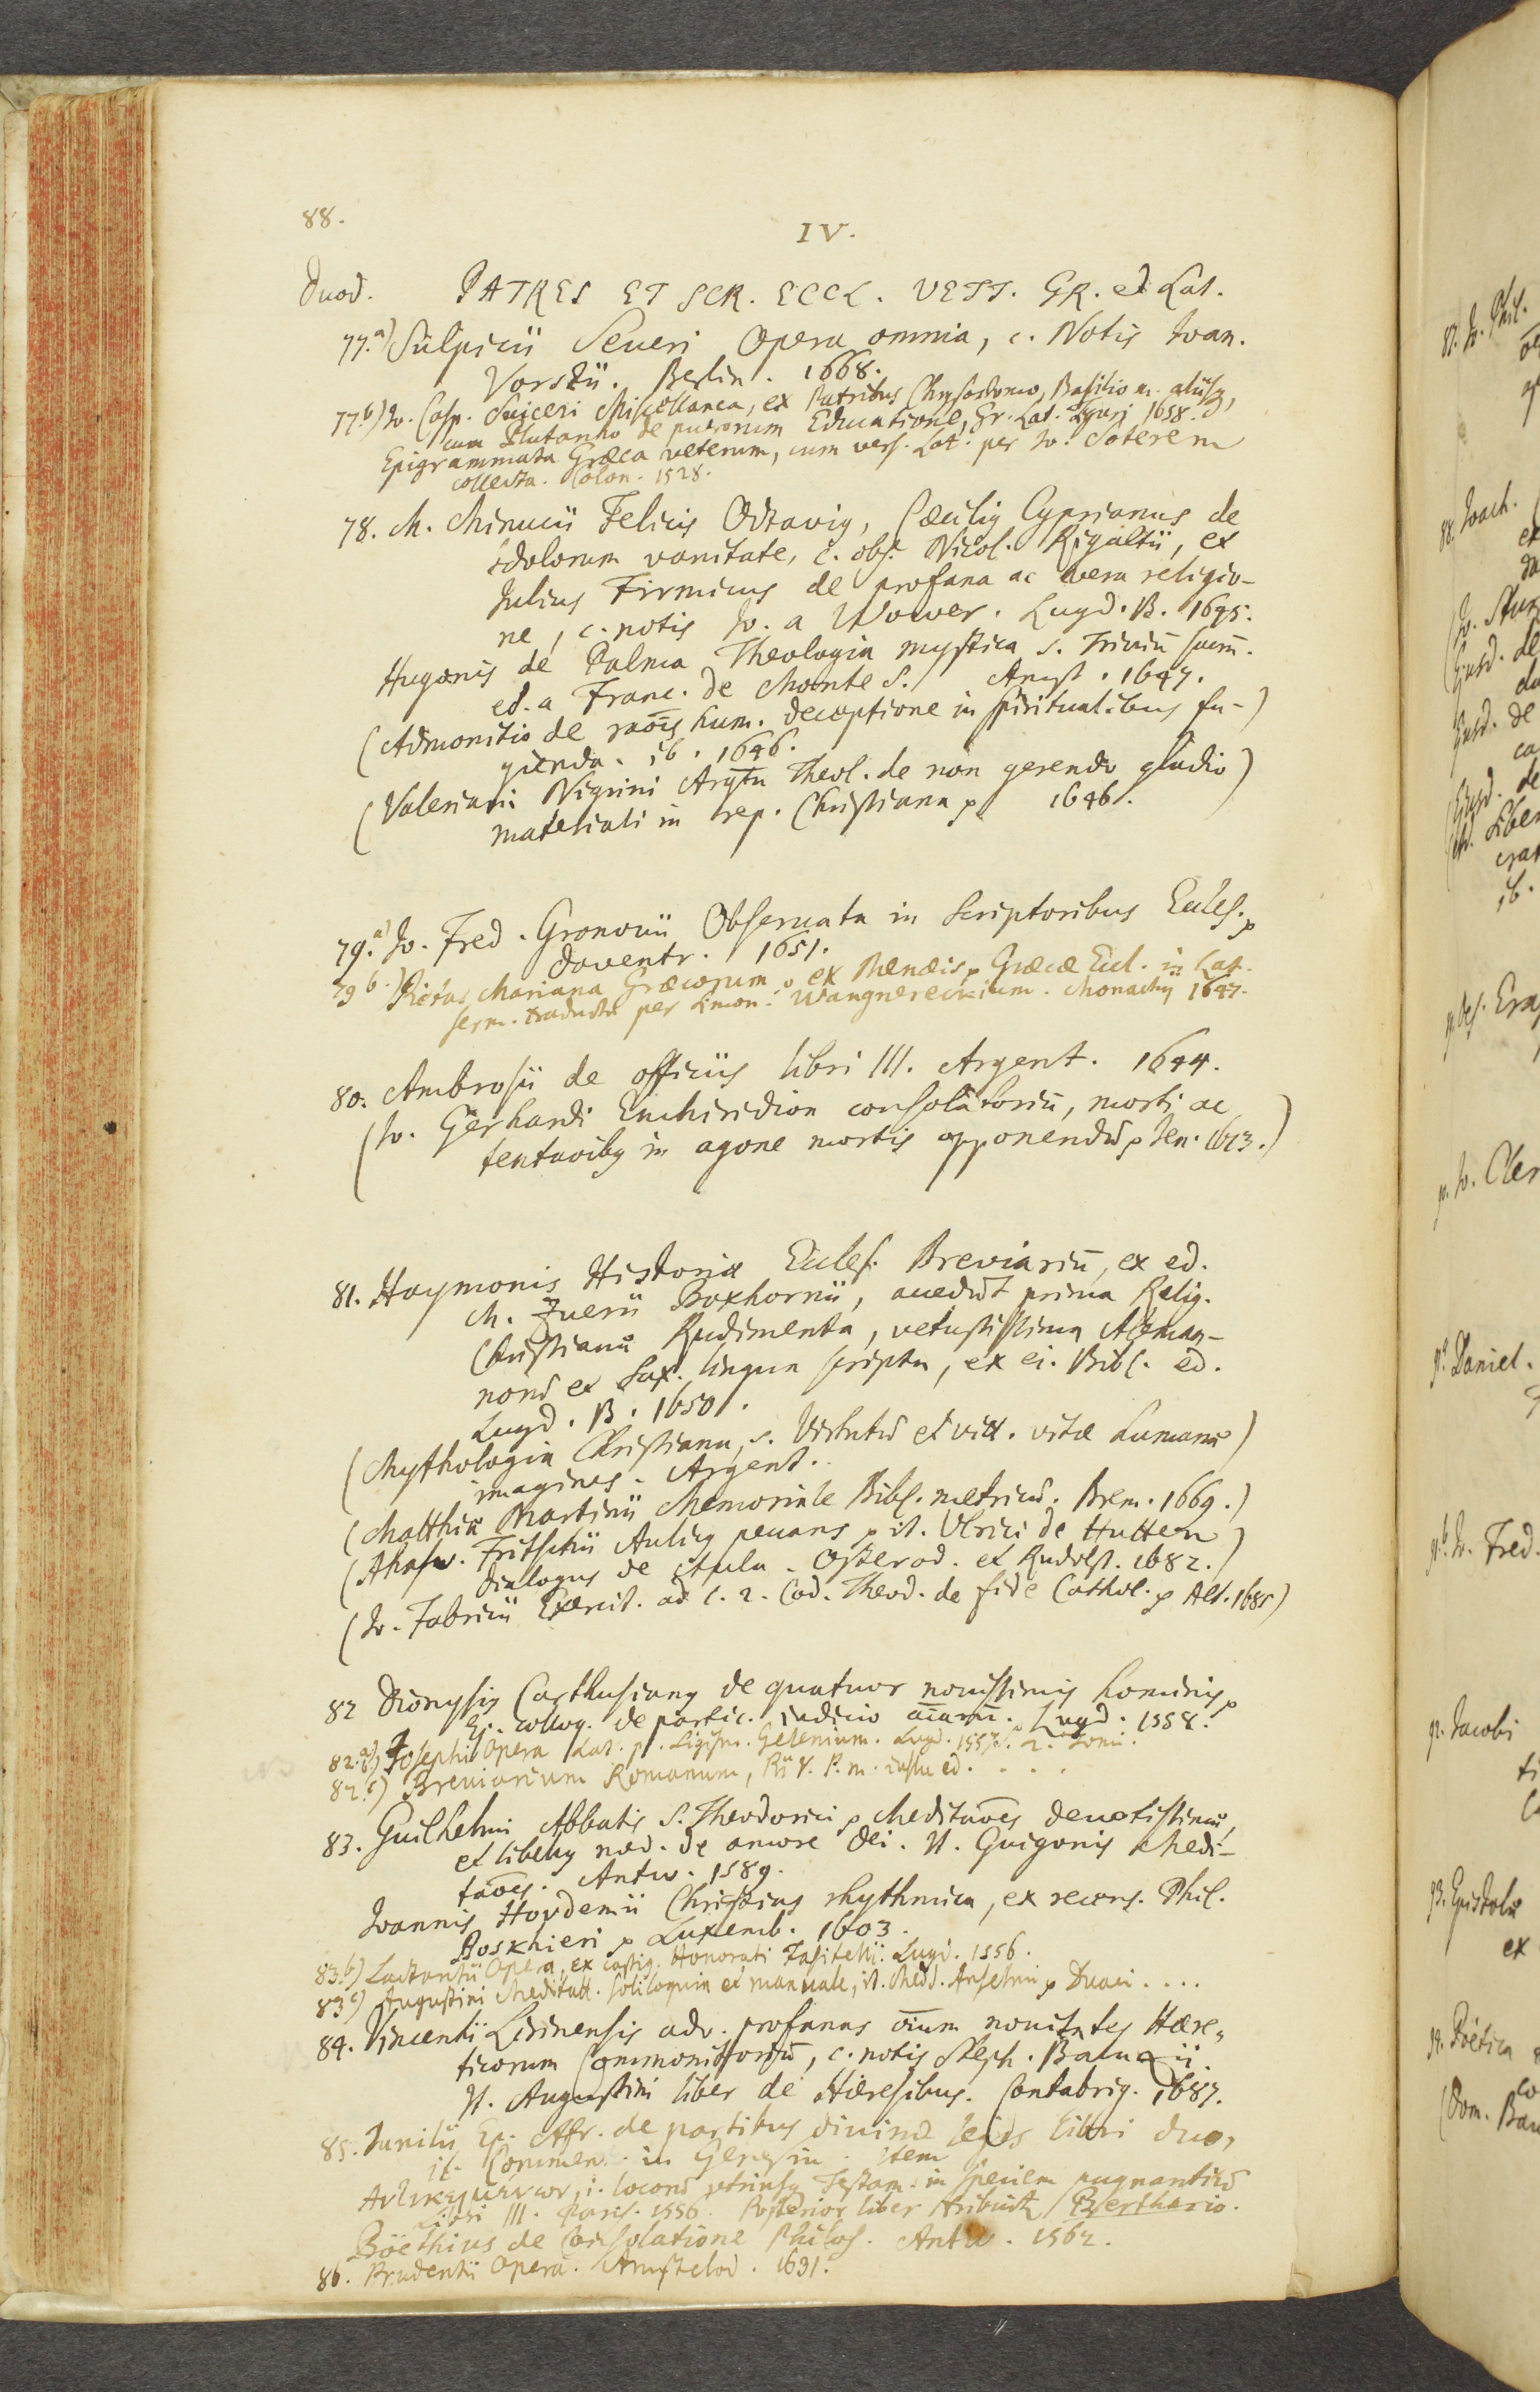 88.
IV.
Duod. PATRES ET SCR. ECCL. VETT. GR. et Lat.
77.a) Sulpicii Seueri Opera omnia, c. Notis Ioan.
Vorstii. Berlin. 1668.
77.b) Io. Casp. Suiceri Miscellanea, ex Patribus Chrysostomo, Basilio M. aliisq,
cum Plutarcho de puerorum Educatione, Gr. Lat. Tiguri 1658.
Epigrammata Græca veterum, cum vers. Lat. per Io. Soterem
collecta. Colon. 1528.
78. M. Minucii Felicis Octavig, Cæcilig Cyprianus de
Idolorum vanitate, c. obs. Nicol. Rigaltii, et
Julius Firmicus de profana ac vera religio-
ne, c. notis Jo. a Wower. Lugd. B. 1645.
Hugonis de Palma Theologia mystica s. Triviū sacrū.
ed. a Franc. de Monte S. Amst. 1647.
(Admonitio de raōis hum. deceptione in spiritualibus fu-)
gienda. ib. 1646.
(Valeriani Nigrini Argtū Theol. de non gerendo gladio)
materiali in rep. Christiana p 1646.
79.a) Jo. Fred. Gronovii Obseruata in Scriptoribus Eccles. p
Daventr. 1651.
79 b.) Pietas Mariana Græcorum, ex Menæis p Græcæ Eccl. in Lat.
serm. traducta per Simon. Wangnereckium. Monachij 1647.
80. Ambrosii de officiis libri III. Argent. 1644.
(Jo. Gerhardi Enchiridion consolatoriū, morti ac
tentaōibg in agone mortis opponendū p Jen. 1673.)
81. Haymonis Historiæ Eccles. Breviariū, ex ed.
M. Zuerii Boxhornii, accedūt prima Relig.
Christianæ Rudimenta, vetustissima Aleman-
norū et Sax. lingua scripta, ex ei. Bibl. ed.
Lugd. B. 1650.
(Mythologia Christiana, s. Virtutū et vitt. vitæ humanæ)
imagines. Argent.
(Matthiæ Martinii Memoriale Bibl. metricū. Brem. 1669.)
(Ahasv. Fritschii Aulicg pecans p it. Vlrici de Hutten)
dialogus de Aula. Osterod. et Rudolst. 1682.)
(Jo. Fabricii Exercit. ad l. 2. Cod. Theod. de fide Cathol. p Alt. 1685)
82 Dionysig Carthusiang de quatuor nouissimis hominis p
Ej. colloq. de partic. iudicio aīarū. Lugd. 1558.
82.b.) Josephi Opera Lat. p. Sigism. Gelenium. Lugd. 1557. 2. Tomi.
82.c) Breviarium Romanum, Pii V. P. M. iussu ed. . . . .
83. Guilhelmi Abbatis S. Theodorici p Meditaōes deuotissimæ,
et libellg med. de amore Dei. It. Guigonis Medi-
taōes. Antw. 1589.
Ioannis Hovdenii Christias rhythmica, ex recens. Phil.
Boskhieri p Luxemb. 1603.
83.b) Lactantii Opera, ex castig. Honorati Fasitelij. Lugd. 1556.
83 c) Augustini Meditatt. Soliloquia et manuale, it. Medd. Anselmi p Duaci . . . .
84. Vincentii Lirinensis adv. profanas oīum nouitates Hære-
ticorum Commonitoriū, c. notis Steph. Baluzii.
It. Augustini liber de Hæresibus. Cantabrig. 1687.
85. Junilii Ep. Afr. de partibus diuinæ legis libri duo,
it. Commen. in Genesin. Item
i. locorū vtriusq Testam. in speciem pugnantiū
Libri III. Paris. 1556. Posterior liber tribuitr Berthario.
Böethius de Consolatione Philos. Antw. 1562.
86. Prudentii Opera. Amstelod. 1631.